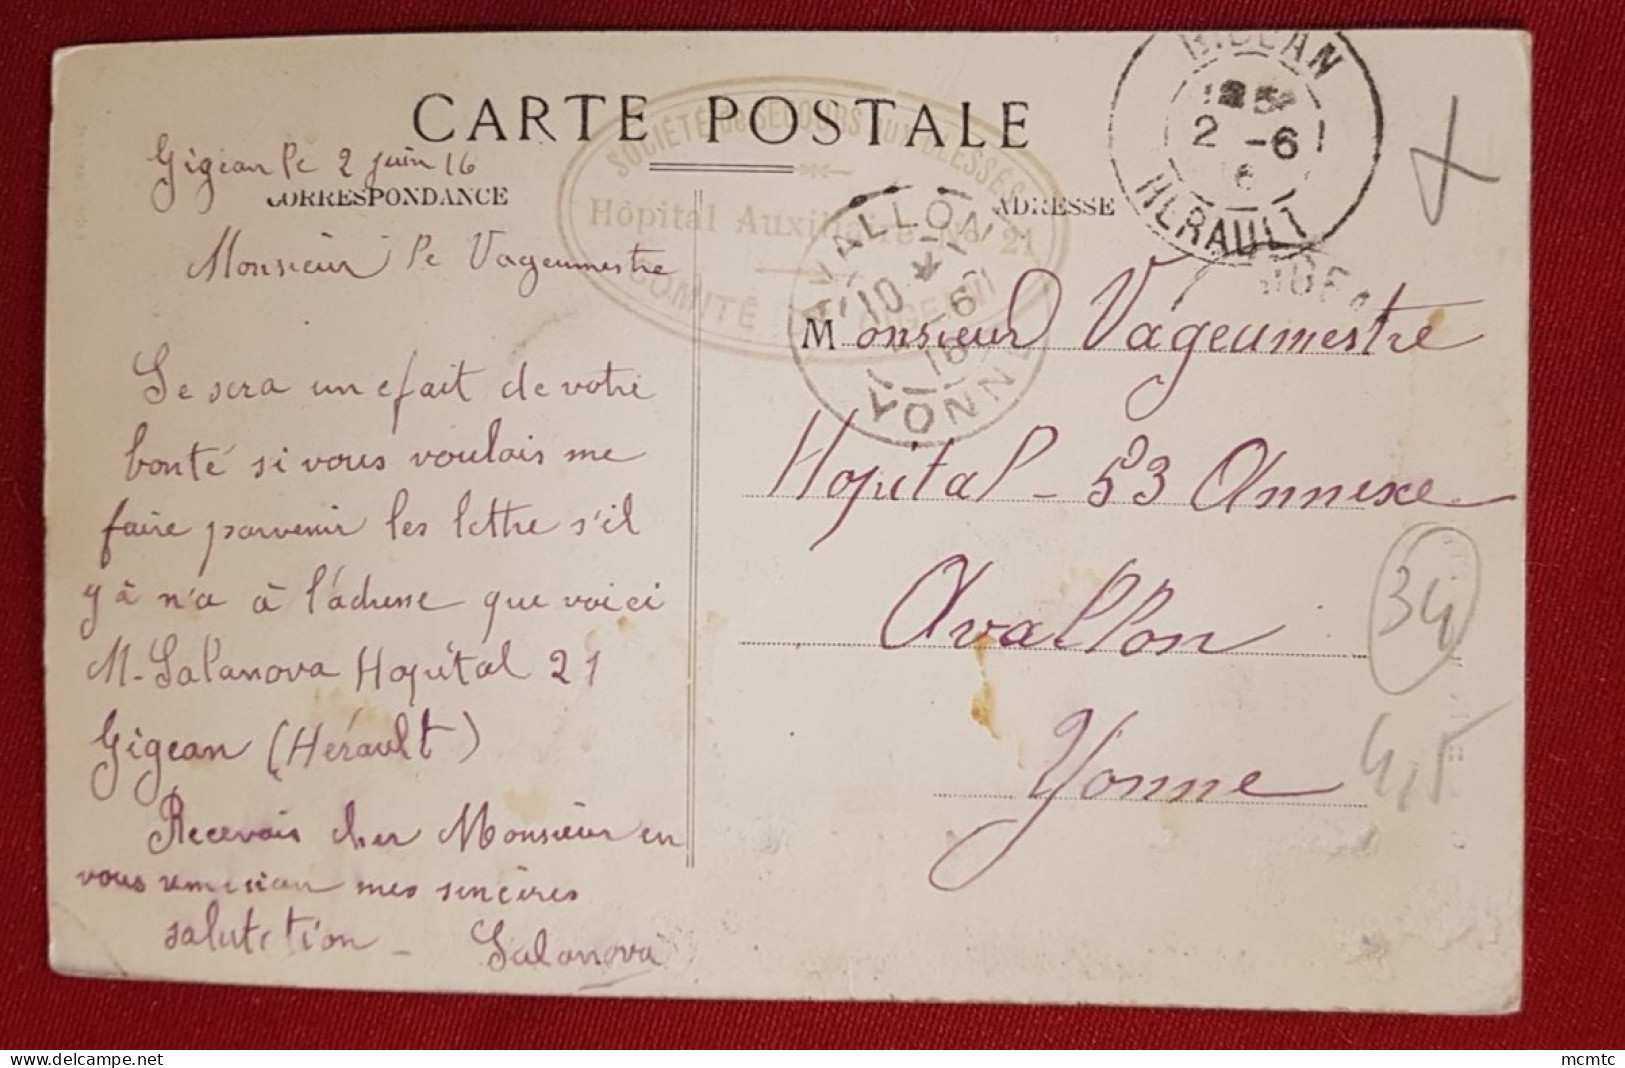 CARTE POSTALE
Gigean le 2 juin 16
CORRESPONDANCE
ADRESSE
SOCIÉTÉ DE SECOURS AUX BLESSÉS
Hôpital Auxiliaire No 21
COMITÉ
AVALLON
10
6
16
YONNE
GIGEAN
2 -6
HERAULT
Monsieur le Vageumestre
Se sera un efait de votre
bonté si vous voulais me
faire parvenir les lettre s'il
y à n'a à l'adresse que voici
M. Salanova Hopital 21
Gigean (Hérault)
Recevais cher Monsieur en
vous remersian mes sincères
salutation - Salanova
Monsieur Vageumestre
Hopital - 53 Annexe
Avallon
Yonne
34
4,5
mcmtc
delcampe.net